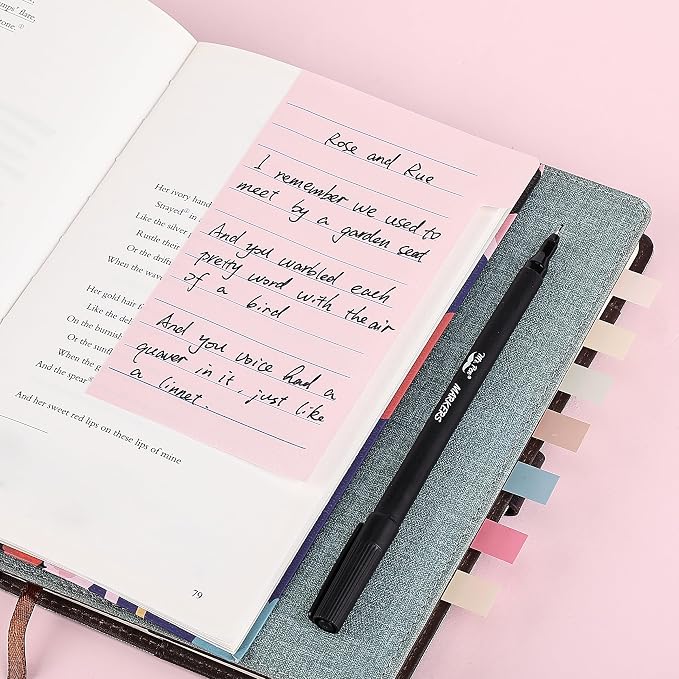 mps' flare,
tone.②
Her ivory hand
Strayed② in
Like the silver
Rustle their
Or the drift
When the wave
Her gold hair f
Like the del
On the burnish
Or the sunf
When the
And the spear
And her sweet red lips on these lips of mine
79
Rose and Rue
I remember we used to
meet by a garden seat
And you warbled each
pretty word with the air
of a bird
And you voice had a
quaver in it, just like
a linnet.
Mr.Pen
MARKERS